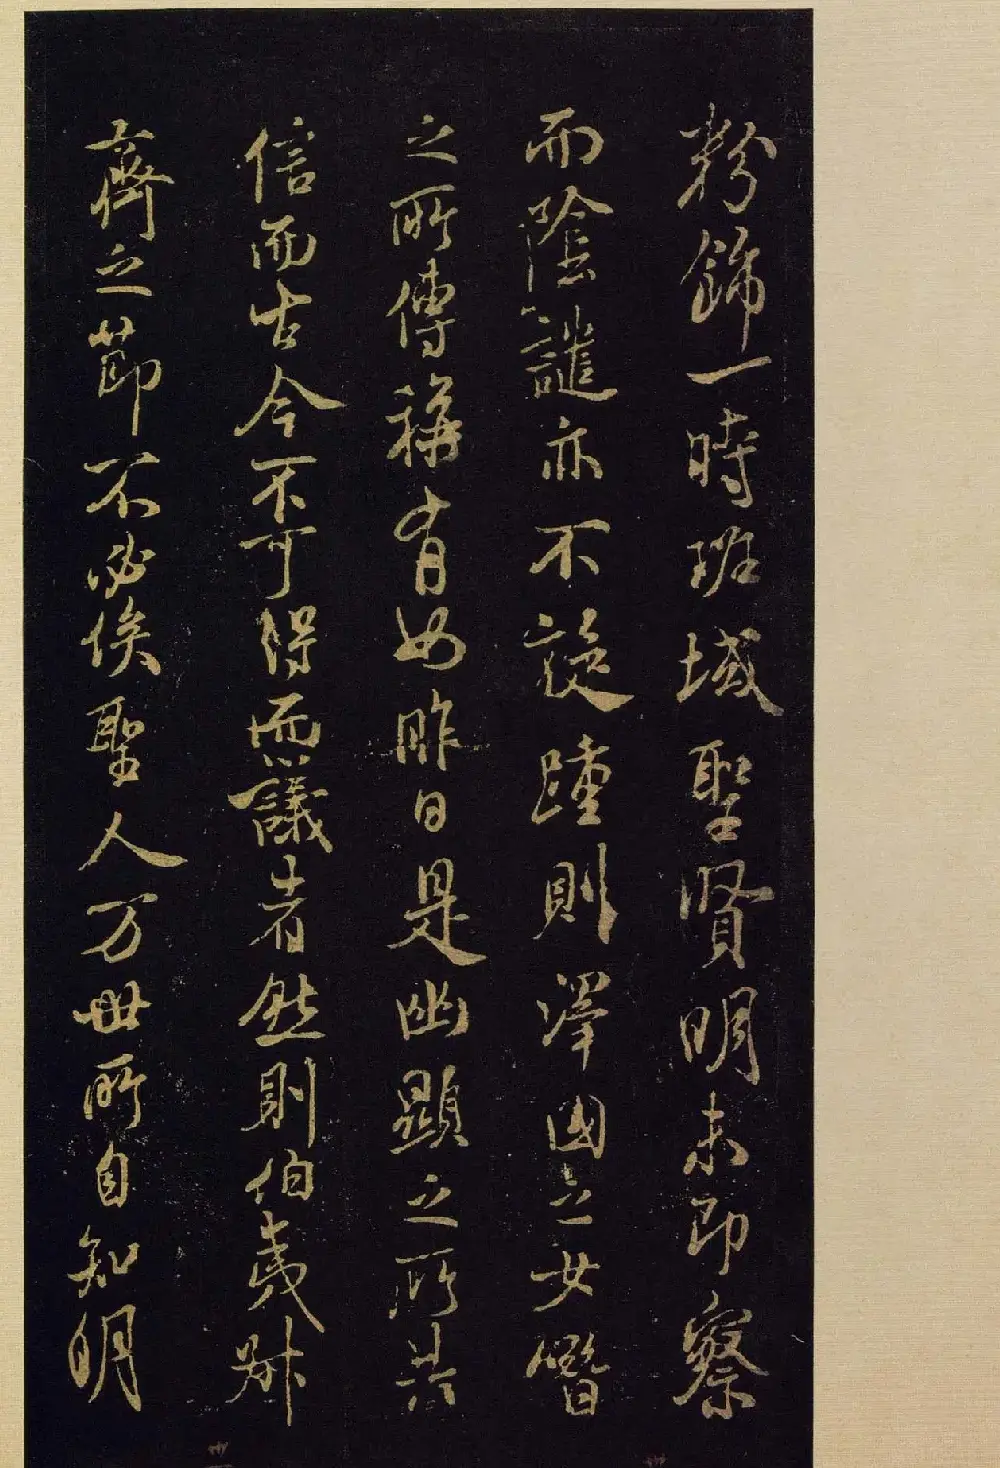 粉飾一時班域聖賢明未即察
而陰譴亦不旋踵則澤國之女僭
之所傳稱有如昨日是幽顯之所共
信而古今不可得而議者然則伯夷叔
齊之節不必俟聖人万世所自知明